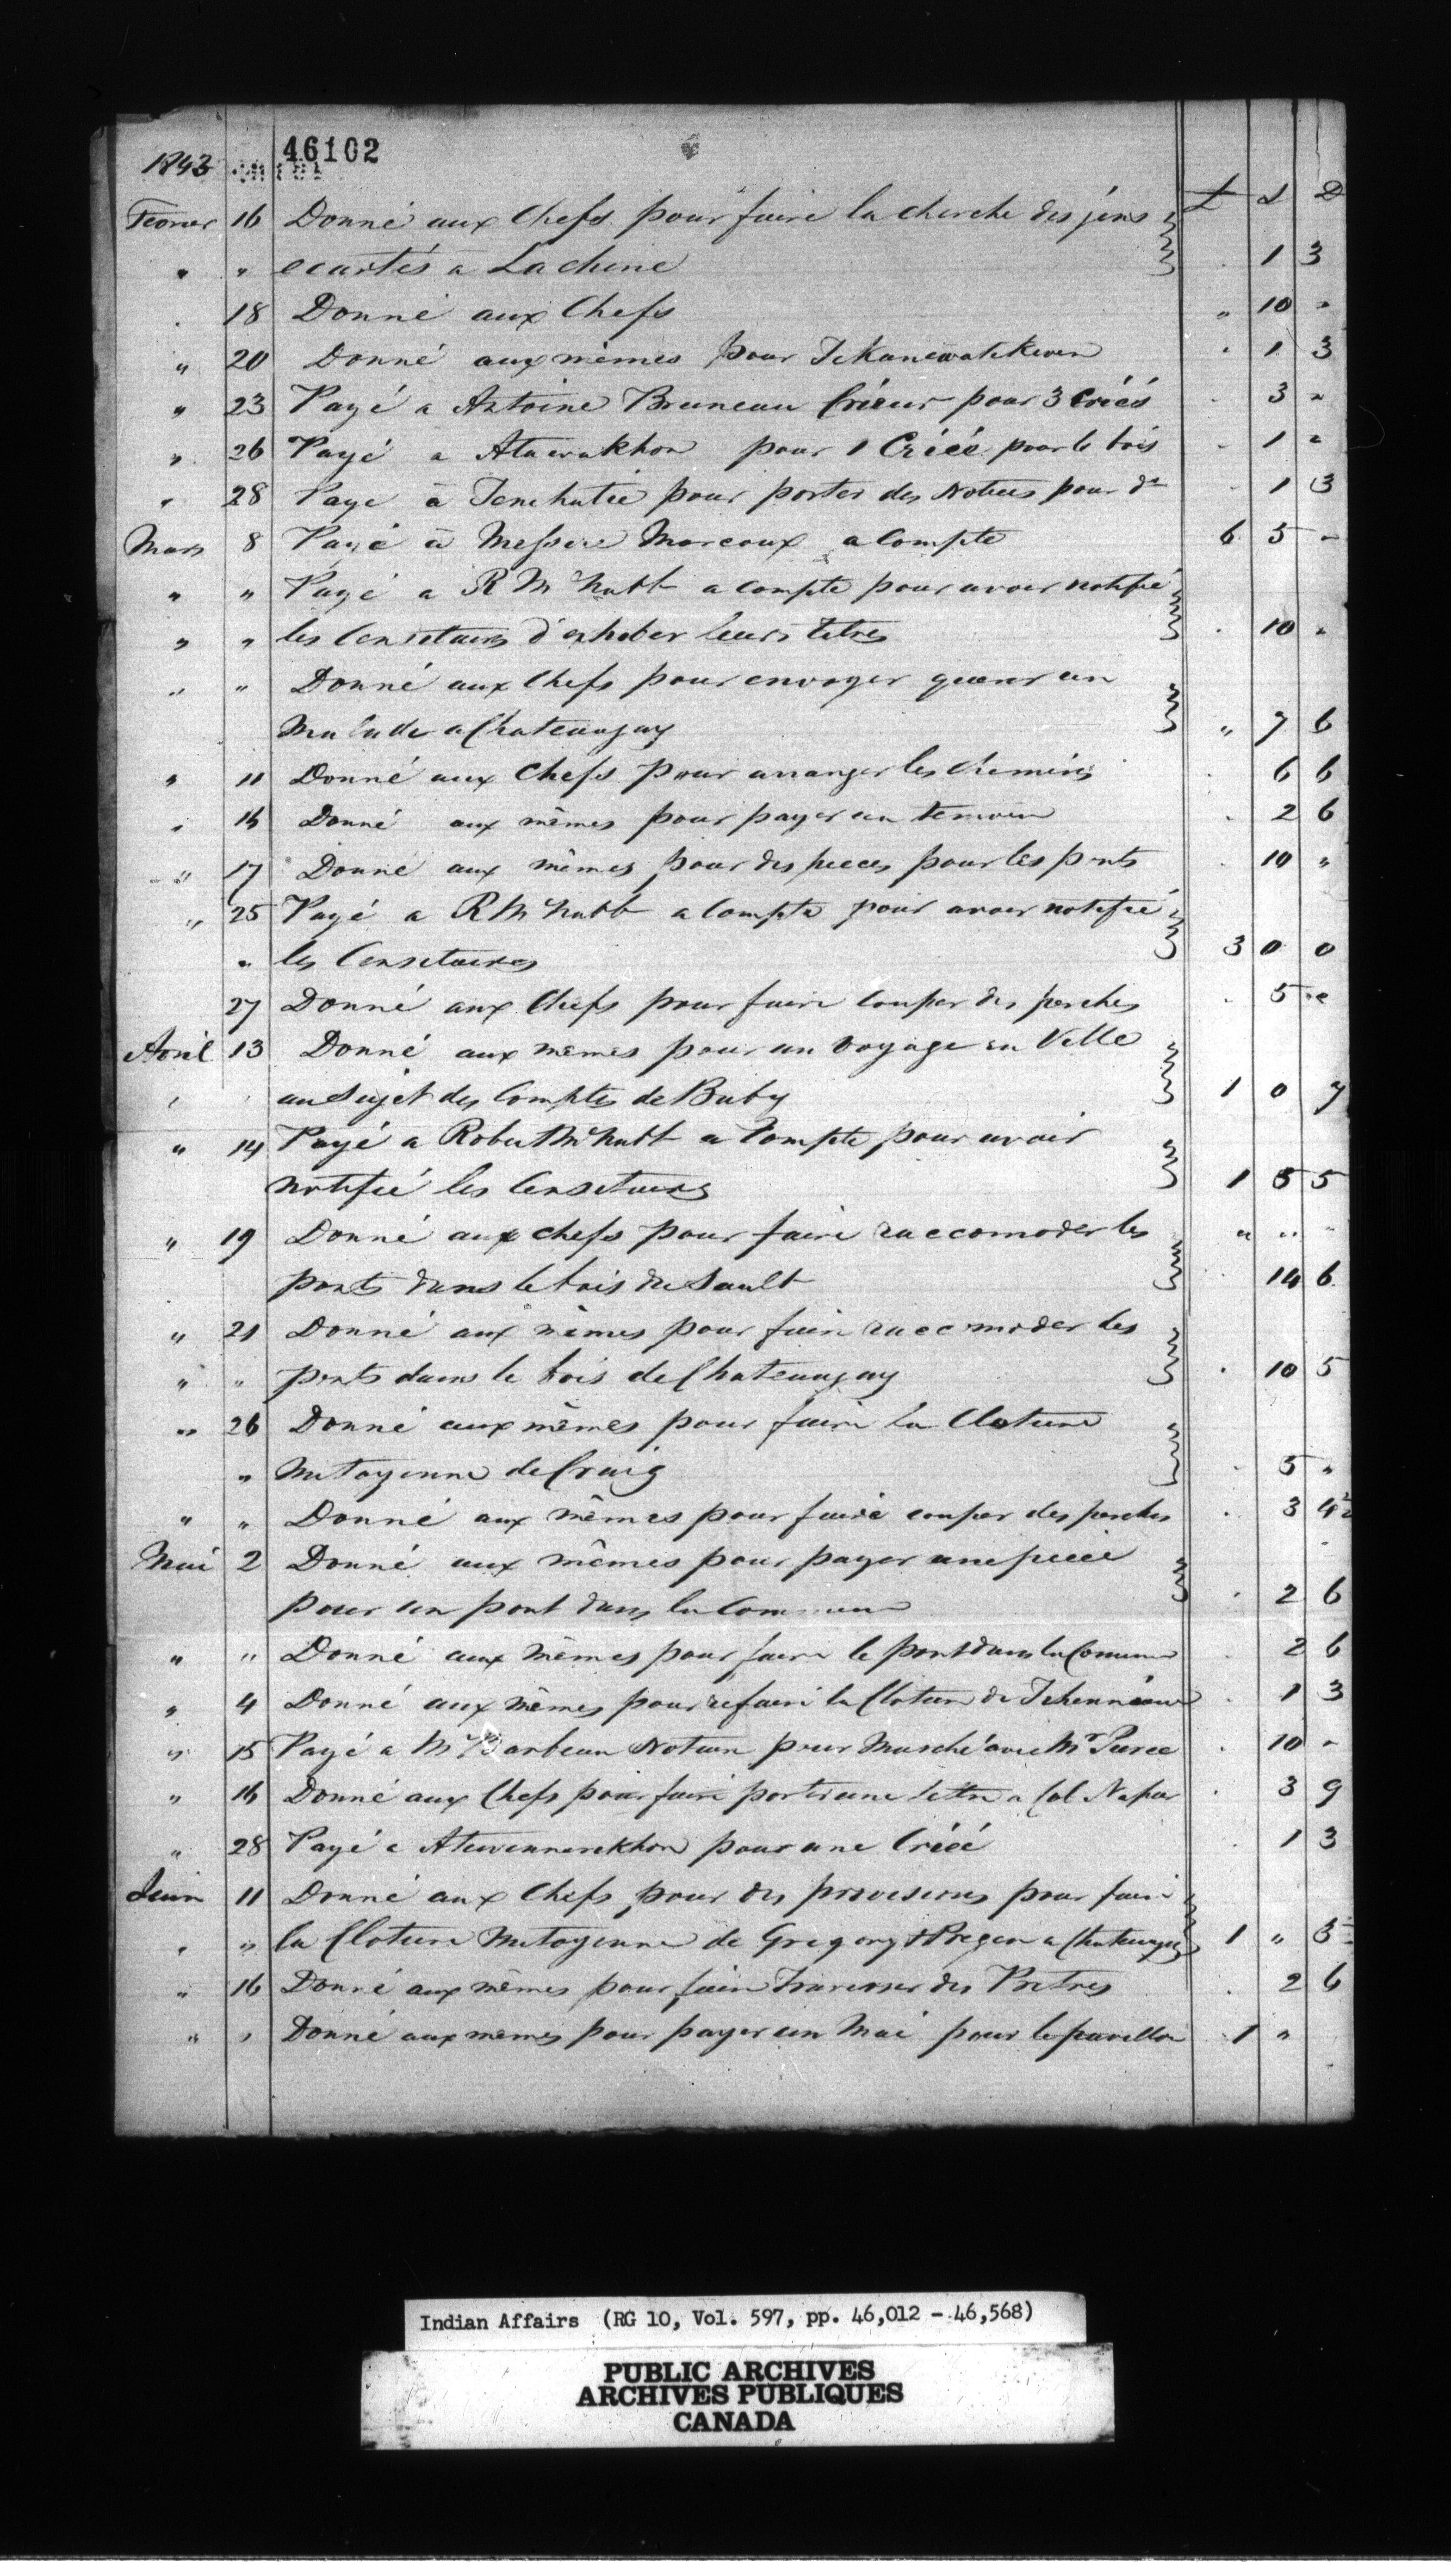 46102
1843
£ s D
Fevrier 16 Donné aux Chefs pour faire la cherche des jens
" " ecartés a Lachine 1 3
18 Donné aux Chefs " 10 "
" 20 Donné aux mêmes pour 1 3
" 23 Payé a Antoine Bruneau Crieur pour 3 Criéés 3 "
" 26 Payé a Atawakhon pour 1 Criéé pour le bois 1 "
" 28 Payé à pour porter des Notices pour do 1 3
Mars 8 Payé à Messire Marcoux a Compte 6 5 "
" " Payé a R McNabb a compte pour avoir notifié
" " les Censitaires d'exhiber leurs titres 10 "
" " Donné aux Chefs pour envoyer querir un
Malade a Chateaugay " 7 6
" 11 Donné aux Chefs pour arranger les chemins 6 6
" 15 Donné aux mêmes pour payer un temoin 2 6
" 17 Donné aux mêmes pour des pieces pour les ponts 10 "
" 25 Payé a R McNabb a Compte pour avoir notifié
" les Censitaires 3 0 0
27 Donné aux Chefs pour faire couper des perches 5 "
Avril 13 Donné aux mêmes pour un voyage en Ville
au Sujet des Comptes de Baby 1 0 7
" 14 Payé a Robert McNabb a Compte pour avoir
notifié les Censitaires 1 5 5
" 19 Donné aux chefs pour faire raccomoder les " " "
ponts dans le bois du Sault 14 6
" 21 Donné aux mêmes pour faire raccomoder les
" " ponts dans le bois de Chateaugay 10 5
" 26 Donné aux mêmes pour faire la Cloture
" Mitoyenne de Craig 5 "
" " Donné aux mêmes pour faire couper des perches 3 4½
Mai 2 Donné aux mêmes pour payer une piece
pour un pont dans la Commune 2 6
" " Donné aux mêmes pour faire le pont dans la Comune 2 6
" 4 Donné aux mêmes pour refaire la Cloture de 1 3
" 15 Payé a Mr Barbeau Notaire pour Marché avec Mr 10 "
" 16 Donné aux Chefs pour faire porter une lettre a Col Napier 3 9
" 28 Payé a pour une Criéé 1 3
Juin 11 Donné aux Chefs pour des provisions pour faire
" " la Cloture Mitoyenne de Gregory & a Chateaugay 1 " 3
" 16 Donné aux mêmes pour faire Traverser des Prêtres 2 6
" " Donné aux mêmes pour payer un Mai pour le pavillon 1 "
Indian Affairs (RG 10, Vol. 597, pp. 46,012 - 46,568)
PUBLIC ARCHIVES
ARCHIVES PUBLIQUES
CANADA